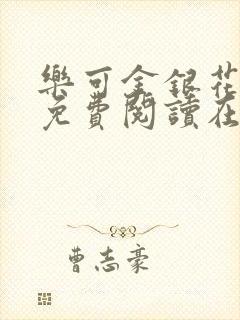 樂可金銀花
免費閱讀在
曹志豪